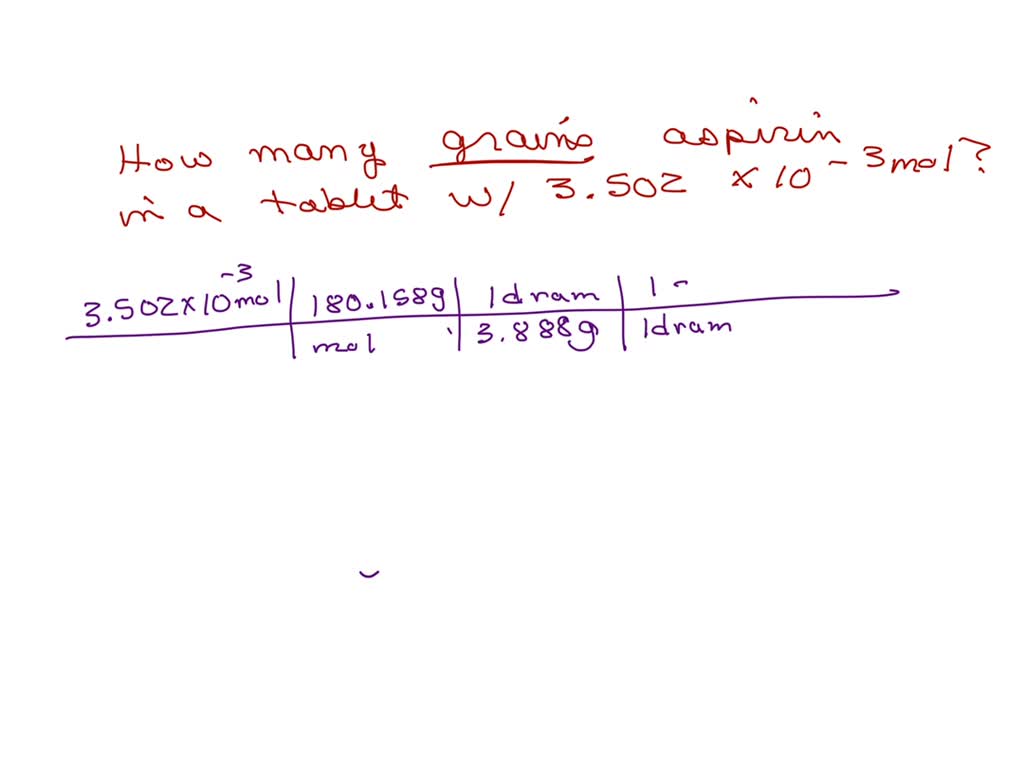 How many grains aspirin
in a tablet w/ 3.502 x 10 -3 mol?
3.502 x 10 -3 mol | 180.158g | 1 dram | 1
mol | 3.888g | 1 dram